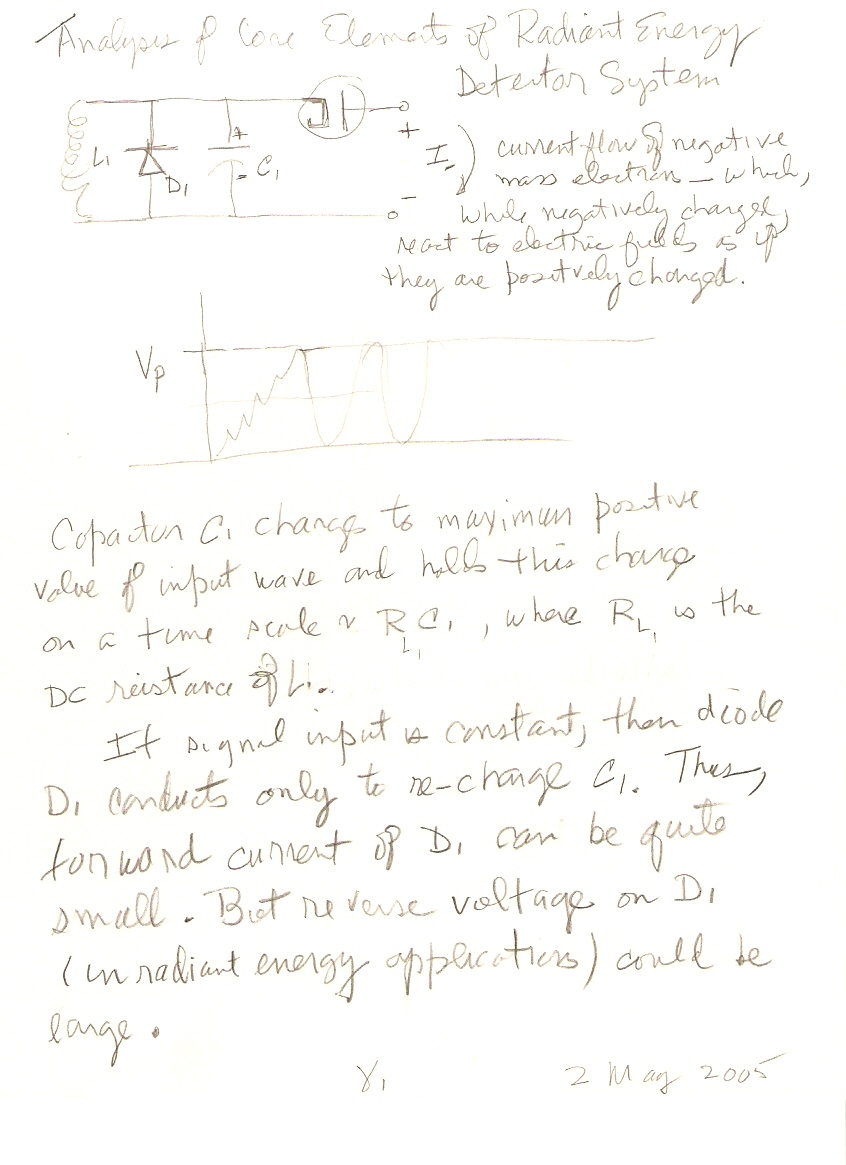 Analysis of Core Elements of Radiant Energy
Detector System
L1
D1
+
- C1
+
-
I- ) current flow of negative
mass electrons – which,
while negatively charged,
react to electric fields as if
they are positively charged.
Vp
Capacitor C1 charges to maximum positive
value of input wave and holds this charge
on a time scale ~ RL1C1, where RL1 is the
DC reistance of L1.
If signal input is constant, then diode
D1 conducts only to re-charge C1. Thus,
forward current of D1 can be quite
small. But reverse voltage on D1
(in radiant energy applications) could be
large.
γ1 2 May 2005